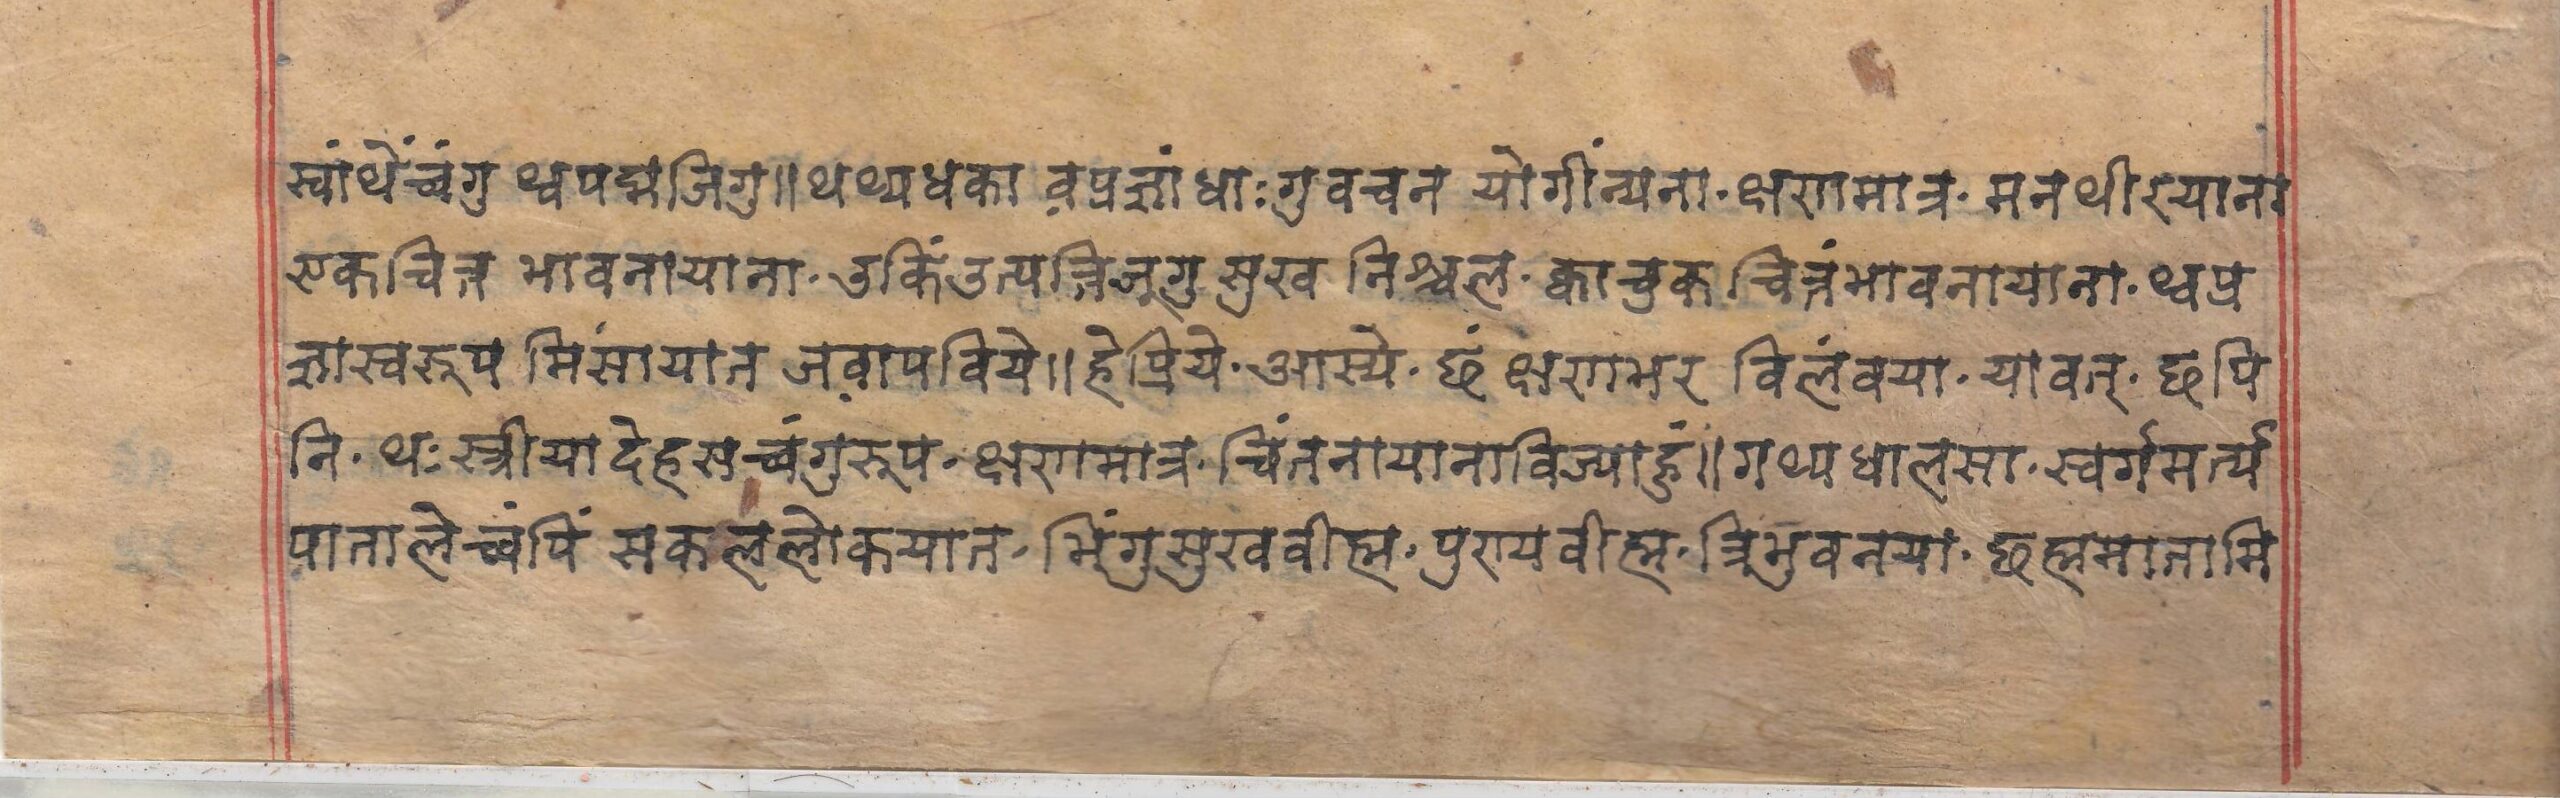 स्वांथेंच्वंगु थ्वपद्मजिगु॥थथ्यधका व़प्रज्ञांधाःगुवचन योगींन्यना·क्षणमात्र·मनथीरयाना
एकचित्त भावनायाना·उकिंउत्पत्तिजूगुसुख निश्चल·क्वाचुक चित्तंभावनायाना·थ्वप्र
ज्ञास्वरूप मिसांयात जव़ापविये॥हेप्रिये·आस्ये·छं क्षणभर विलंवया·यावत्·छपि
नि·थःस्त्रीयादेहसच्वंगुरूप·क्षणमात्र·चिंतनायानाविज्याहुं॥गथ्यधालसा·स्वर्गमर्त्य
पातालेच्वंपिं सकललोकयात·भिंगुसुखवीह्म·पुण्यवीह्म·त्रिभुवनया·छह्ममातामि